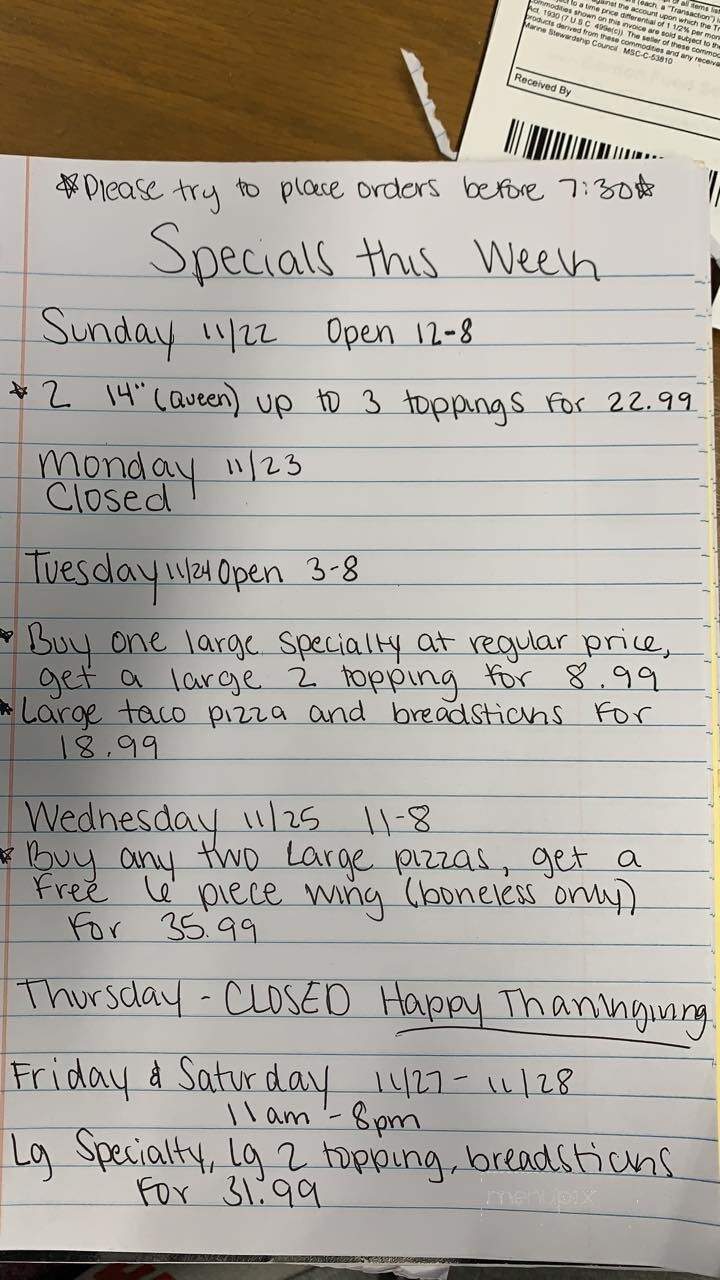 of all items list
(each, a "Transaction")
against the account upon which the Tr
to a time price differential of 1 1/2% per mon
commodities shown on this invoice are sold subject to the
Act, 1930 (7 U.S.C. 499e(c)). The seller of these commod
products derived from these commodities and any receiva
Marine Stewardship Council MSC-C-53810
Received By
☆Please try to place orders before 7:30☆
Specials this Week
Sunday 11/22 Open 12-8
☆ 2 14" (Queen) up to 3 toppings for 22.99
Monday 11/23
Closed
Tuesday 11/24 Open 3-8
☆ Buy one large specialty at regular price,
get a large 2 topping for 8.99
☆ Large taco pizza and breadsticks for
18.99
Wednesday 11/25 11-8
☆ Buy any two Large pizzas, get a
free 6 piece wing (boneless only)
for 35.99
Thursday - CLOSED Happy Thanksgiving
Friday & Saturday 11/27 - 11/28
11am - 8pm
Lg Specialty, lg 2 topping, breadsticks
for 31.99
menupix